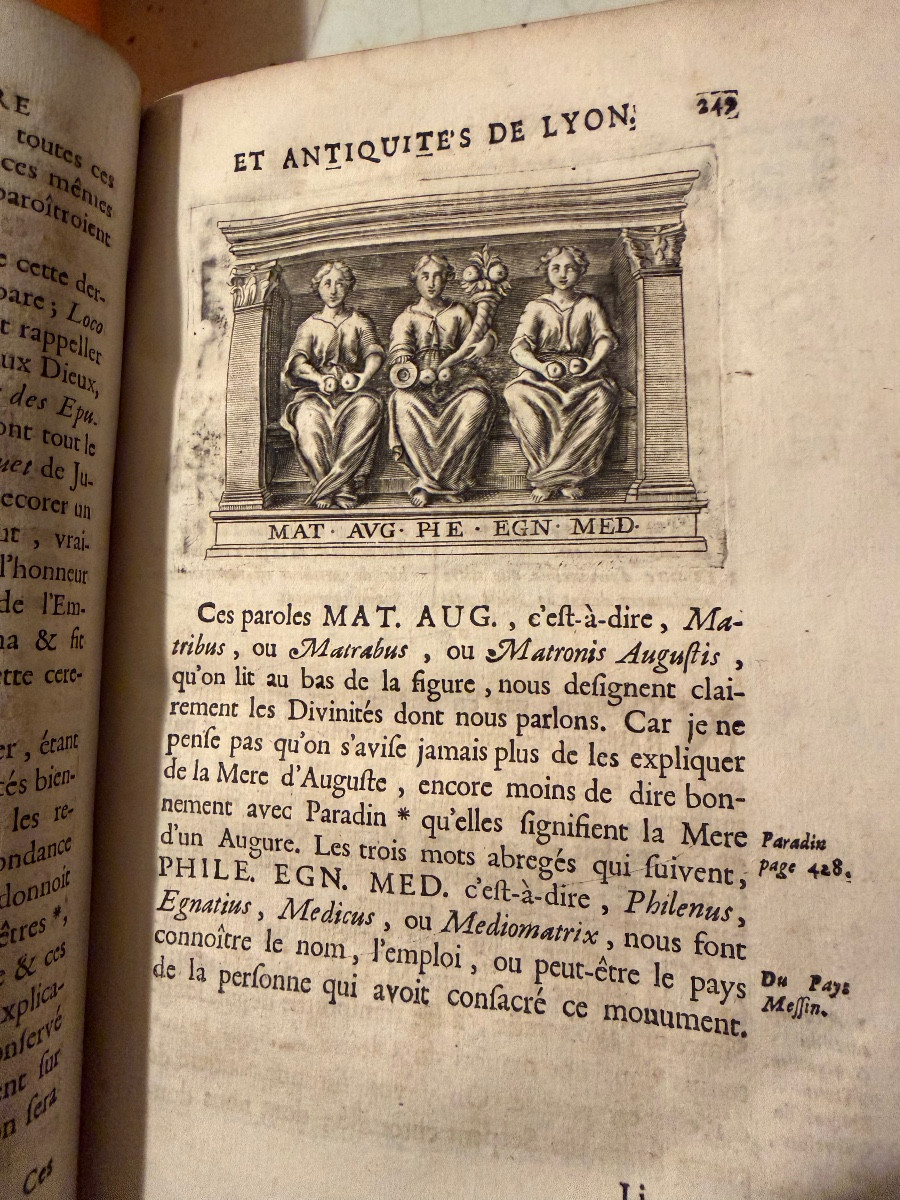 RE
toutes ces
ces mêmes
paroîtroient
cette der-
pare ; Loco
t rappeller
ux Dieux,
des Epu-
ont tout le
uet de Ju-
ecorer un
nt , vrai-
l'honneur
de l'Em-
na & fit
ette cere-
er , étant
tés bien-
les re-
ondance
donnoit
êtres *,
e & ces
xplica-
onſervé
ent ſur
n ſera
Ces
ET ANTIQUITE'S DE LYON. 249
MAT · AVG · PIE · EGN · MED ·
Ces paroles MAT. AUG. , c'eſt-à-dire , Ma-
tribus , ou Matrabus , ou Matronis Auguſtis ,
qu'on lit au bas de la figure , nous deſignent clai-
rement les Divinités dont nous parlons. Car je ne
penſe pas qu'on s'aviſe jamais plus de les expliquer
de la Mere d'Auguſte , encore moins de dire bon-
nement avec Paradin * qu'elles ſignifient la Mere
d'un Augure. Les trois mots abregés qui ſuivent ,
PHILE. EGN. MED. c'eſt-à-dire , Philenus ,
Egnatius , Medicus , ou Mediomatrix , nous font
connoître le nom , l'emploi , ou peut-être le pays
de la perſonne qui avoit conſacré ce monument.
Paradin
page 428.
Du Pays
Meſſin.
Ii